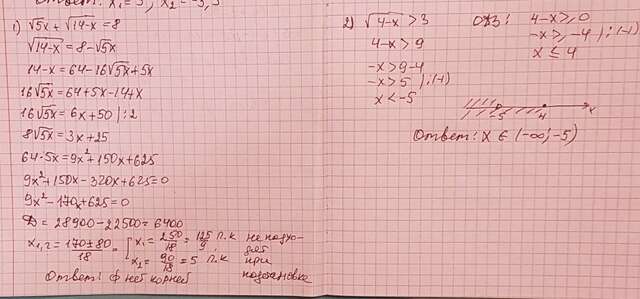 Ответ: x₁=5, x₂=-3,5
1) √5x + √14-x = 8
√14-x = 8-√5x
14-x = 64-16√5x+5x
16√5x = 64+5x-14+x
16√5x = 6x+50 | :2
8√5x = 3x+25
64·5x = 9x²+150x+625
9x²+150x-320x+625=0
9x²-170x+625=0
D = 28900-22500=6400
x₁,₂ = 170±80/18 = [ x₁ = 250/18 = 125/9 п.к не подхо-
дят
x₂ = 90/18 = 5 п.к при
Ответ: ф нет корней подстановке
2) √4-x > 3
4-x > 9
-x > 9-4
-x > 5 | :(-1)
x < -5
ОДЗ: 4-x ≥ 0
-x ≥ -4 | :(-1)
x ≤ 4
-5 4 x
Ответ: x ∈ (-∞; -5)